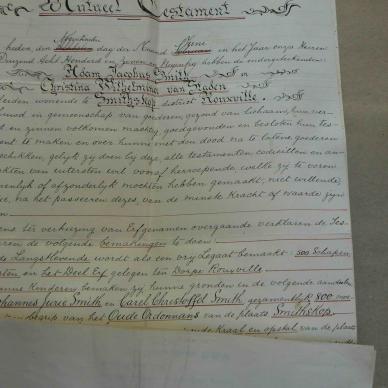 Mutueel Testament
Op heden, den dag der Maand Juni in het Jaar onzes Heeren
Duizend Acht Honderd en zeven en Negentig hebben de ondergeteekenden
Adam Jacobus Smith en
Christina Wilhelmina van Staden
beiden wonende te Smithskop district Rouxville.
Getrouwd in gemeenschap van goederen, gezond van lichaam, hun ver-
stand en zinnen volkomen machtig, goedgevonden en besloten hun Tes-
tament te maken en over hunne met der dood na te laten goederen
beschikken, gelijk zij doen bij deze, alle testamenten codicillen en an-
akten van uitersten wil vóór herroepende, welke zij te voren
gemaakt, niet willende,
dat die, na het passeeren dezes, van de minste kracht of waarde zijn
ens ter verkiezing van Erfgenamen overgaande verklaren de Tes-
teeren de volgende bemakingen te doen
de Langstlevende wordt als een vry Legaat bemaakt 300 Schapen,
en het Deel Erf gelegen ten Dorpe Rouxville.
hunne Kinderen bemaken zij hunne gronden in de volgende aandeelen
Johannes Jurie Smith en Carel Christoffel Smith gezamentlijk 800 mor-
begrip van het Oude Ordonnans van de plaats Smithskop
oude Kraal en opstal van de plaats